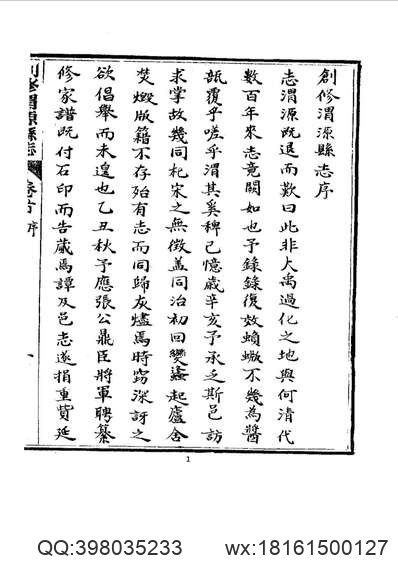 創修渭源縣志序
志渭源既退而歎曰此非大禹過化之地與何清代
數百年來志竟闕如也予錄錄復效蝜蝂不幾為醬
瓿覆乎嗟乎渭其奚稗已憶歲辛亥予承乏斯邑訪
求掌故幾同杞宋之無徵盖同治初回變蠭起廬舍
焚燬版籍不存殆有志而同歸灰燼焉時竊深訝之
欲倡舉而未遑也乙丑秋予應張公鼎臣將軍聘纂
修家譜既付石印而告蕆焉譚及邑志遂捐重貲延
創修渭源縣志 卷首 序
一
1
QQ:398035233 wx:18161500127